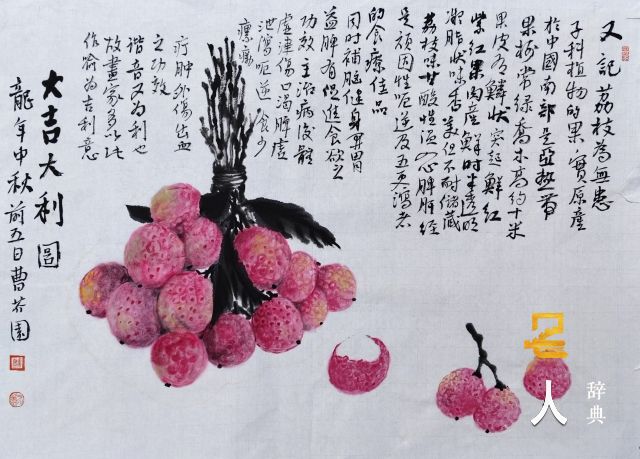 又記荔枝為無患
子科植物的果實原產
於中國南部是亞熱帶
果樹常綠喬木高約十米
果皮有鱗狀突起鮮紅
紫紅果肉產鮮時半透明
凝脂狀味香美但不耐儲藏
荔枝味甘酸性溫入心脾肝經
是頑固性呃逆及五更瀉者
的食療佳品
同時補腦健身開胃
益脾有促進食欲之
功效主治病後體
虛津傷口渴脾虛
泄瀉呃逆食少
瘰癧
疔腫外傷出血
之功效
諧音又為利也
故畫家多以此
作喻為吉利意
大吉大利圖
龍年中秋前五日曹芥園
名人
辞典